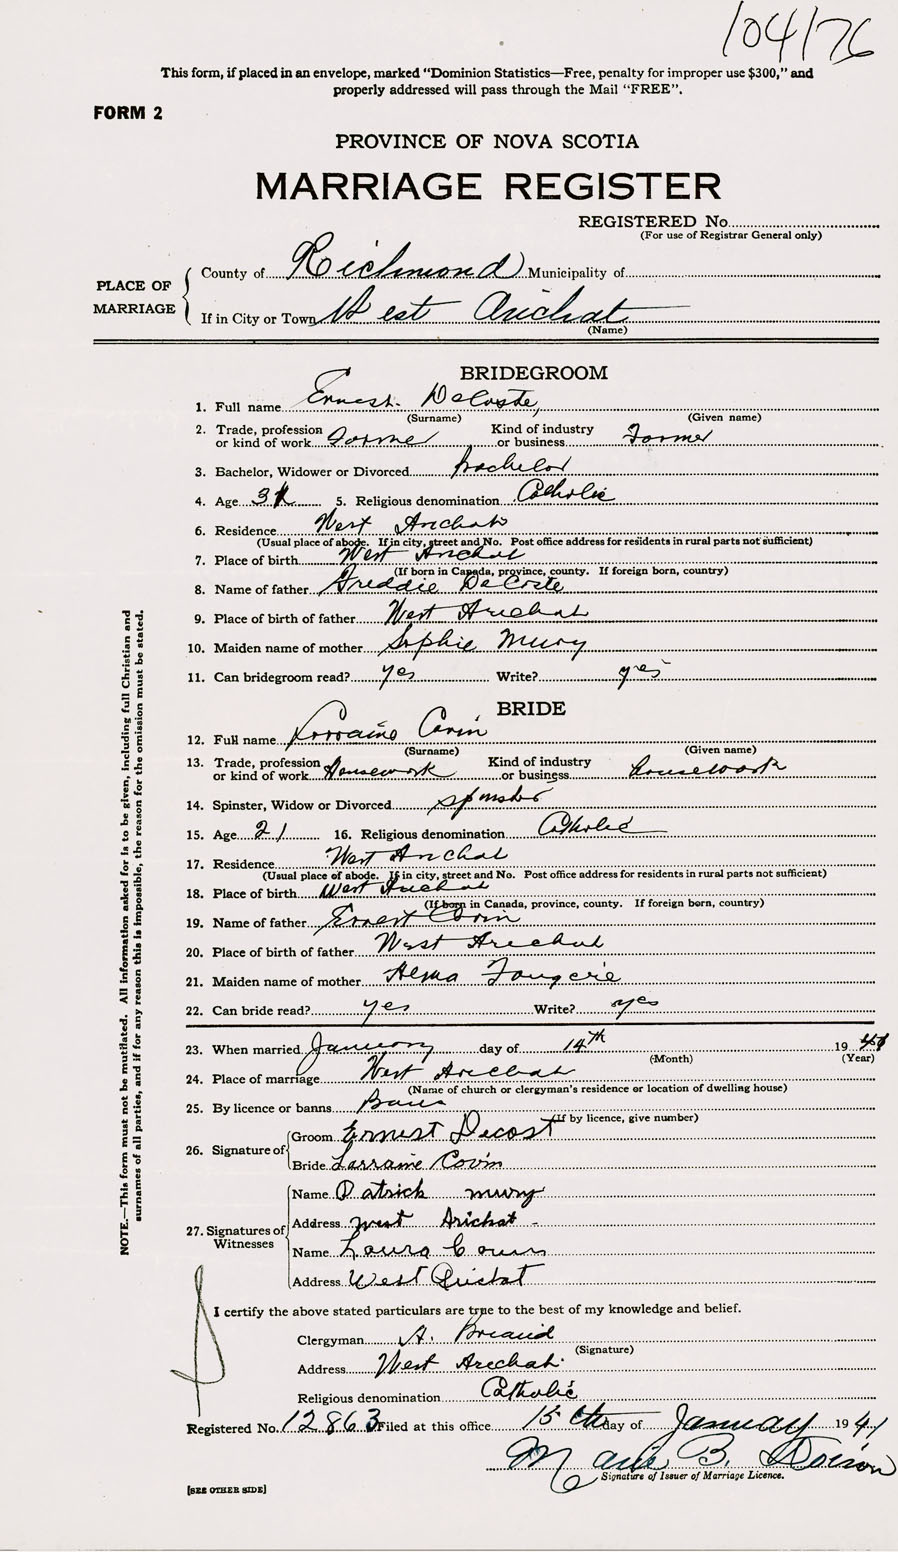 104176
This form, if placed in an envelope, marked "Dominion Statistics—Free, penalty for improper use $300," and
properly addressed will pass through the Mail "FREE".
FORM 2
PROVINCE OF NOVA SCOTIA
MARRIAGE REGISTER
REGISTERED No.
(For use of Registrar General only)
PLACE OF MARRIAGE
County of Richmond Municipality of
If in City or Town West Arichat
(Name)
BRIDEGROOM
1. Full name Ernest DeCoste,
(Surname) (Given name)
2. Trade, profession or kind of work Farmer Kind of industry or business Farmer
3. Bachelor, Widower or Divorced bachelor
4. Age 5. Religious denomination Catholic
6. Residence West Arichat
(Usual place of abode. If in city, street and No. Post office address for residents in rural parts not sufficient)
7. Place of birth West Arichat
(If born in Canada, province, county. If foreign born, country)
8. Name of father Freddie DeCoste
9. Place of birth of father West Arichat
10. Maiden name of mother Sophie Mury
11. Can bridegroom read? yes Write? yes
BRIDE
12. Full name Lorraine Covin
(Surname) (Given name)
13. Trade, profession or kind of work Housework Kind of industry or business housework
14. Spinster, Widow or Divorced spinster
15. Age 21 16. Religious denomination Catholic
17. Residence West Arichat
(Usual place of abode. If in city, street and No. Post office address for residents in rural parts not sufficient)
18. Place of birth West Arichat
(If born in Canada, province, county. If foreign born, country)
19. Name of father Ernest Covin
20. Place of birth of father West Arichat
21. Maiden name of mother Alma Fougere
22. Can bride read? yes Write? yes
23. When married January day of 14th 19 41
(Month) (Year)
24. Place of marriage West Arichat
(Name of church or clergyman's residence or location of dwelling house)
25. By licence or banns Bans
(If by licence, give number)
26. Signature of
Groom Ernest Decost
Bride Lorraine Covin
27. Signatures of Witnesses
Name Patrick mury
Address west Arichat -
Name Laura
Address West Arichat
I certify the above stated particulars are true to the best of my knowledge and belief.
Clergyman A. Briand
(Signature)
Address West Arichat
Religious denomination Catholic
Registered No. 12863 Filed at this office 15th day of January 1941
Marie B. Doiron
Signature of Issuer of Marriage Licence.
[SEE OTHER SIDE]
NOTE.—This form must not be mutilated. All information asked for is to be given, including full Christian and
surnames of all parties, and if for any reason this is impossible, the reason for the omission must be stated.